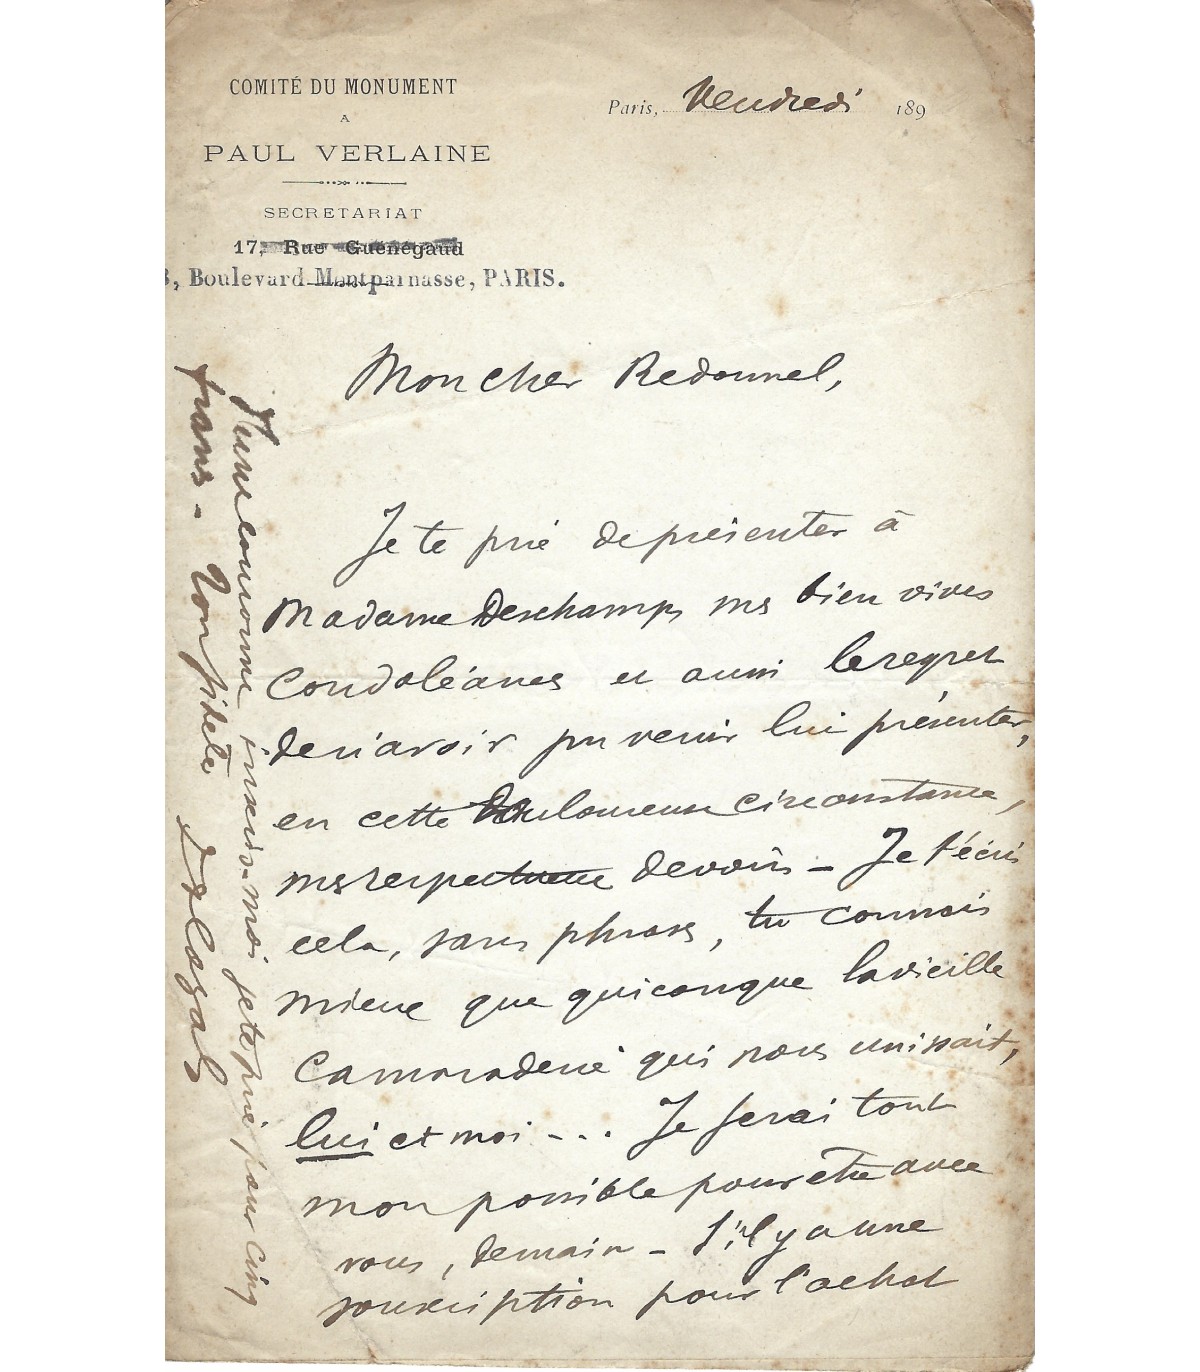 COMITÉ DU MONUMENT
A
PAUL VERLAINE
SECRETARIAT
17, Rue Guénégaud
3, Boulevard Montparnasse, PARIS.
Paris, Vendredi 189
Mon cher Redonnel,
Je te prie de présenter à
Madame Deschamps mes bien vives
condoléances et aussi le regret
de n'avoir pu venir lui présenter,
en cette douloureuse circonstance,
mes respectueux devoirs – Je t'écris
cela, sans phrases, tu connais
mieux que quiconque la vieille
camaraderie qui nous unissait,
lui et moi - - . . Je ferai tout
mon possible pour être avec
vous, demain – S'il y a une
souscription pour l'achat
d'une couronne inscris-moi je te prie pour cinq
francs - Ton fidèle